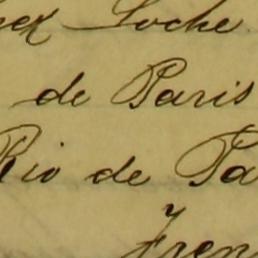 Loche
de Paris
Rio de Pa
Fren